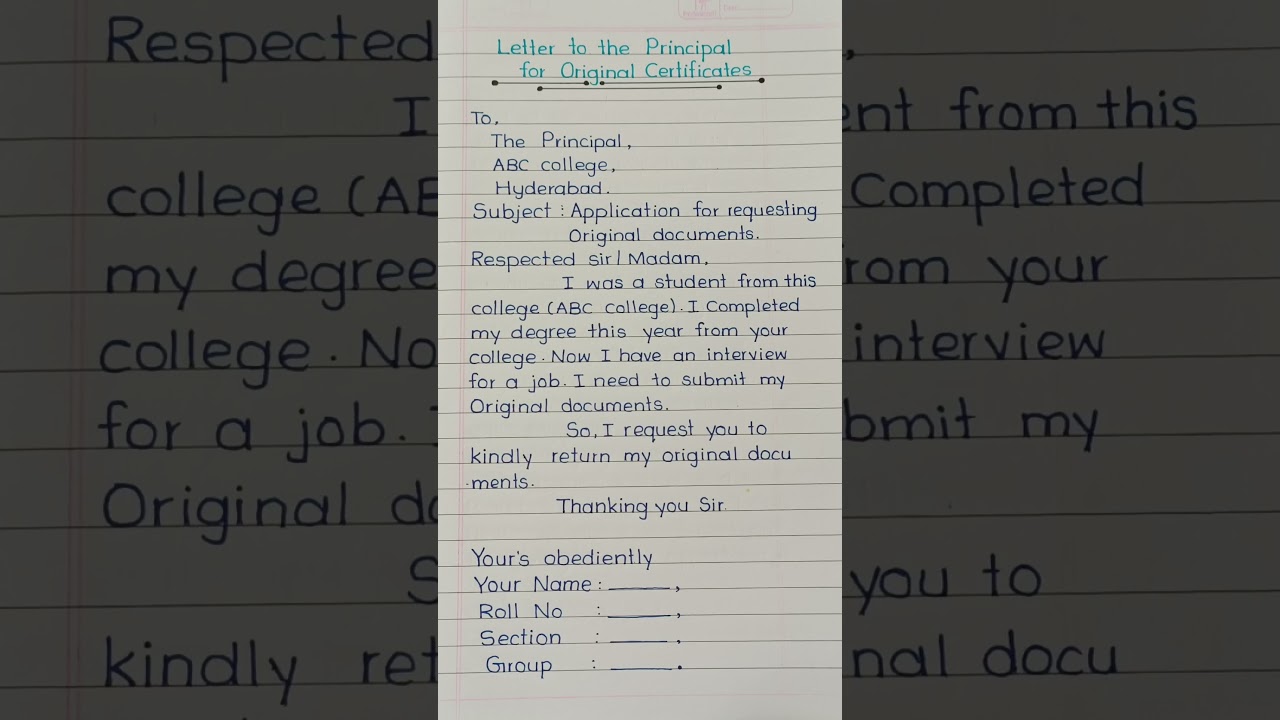 Letter to the Principal
for Original Certificates
To,
The Principal,
ABC college,
Hyderabad.
Subject : Application for requesting
Original documents.
Respected sir/Madam,
I was a student from this
college (ABC college). I Completed
my degree this year from your
college. Now I have an interview
for a job. I need to submit my
Original documents.
So, I request you to
kindly return my original docu
-ments.
Thanking you Sir.
Your's obediently
Your Name : ______,
Roll No : ______,
Section : ______,
Group : ______.